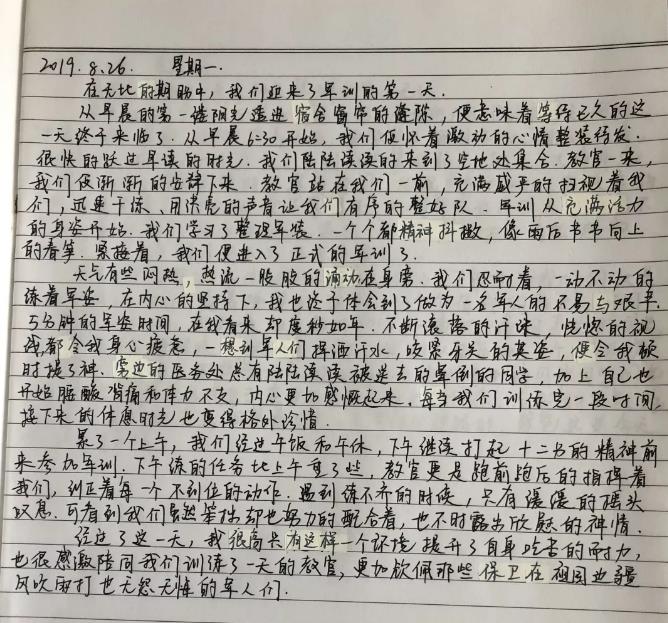 2019.8.26. 星期一.
在无比的期盼中，我们迎来了军训的第一天.
从早晨的第一缕阳光透进宿舍窗帘的缝隙，便意味着等待已久的这
一天终于来临了. 从早晨6:30开始，我们便怀着激动的心情整装待发.
很快的跃过早读的时光. 我们陆陆续续的来到了空地处集合. 教官一来,
我们便渐渐的安静下来. 教官站在我们一前，充满威严的扫视着我
们，迅速干练、用洪亮的声音让我们有序的整好队. 军训从充满活力
的身姿开始. 我们学习了整理军装. 一个个都精神抖擞，像雨后节节向上
的春笋. 紧接着，我们便进入了正式的军训了.
天气有些闷热，热流一股股的涌动在身旁. 我们忍耐着，一动不动的
练着军姿，在内心的坚持下，我也终于体会到了做为一名军人的不易与艰辛.
5分钟的军姿时间，在我看来却度秒如年. 不断滚落的汗珠，恍惚的视
线都令我身心疲惫，一想到军人们挥洒汗水，咬紧牙关的英姿，便令我顿
时提了神. 旁边的医务处总有陆陆续续被送去的晕倒的同学，加上自己也
开始腰酸背痛和体力不支，内心更加感慨起来. 每当我们训练完一段时间,
接下来的休息时光也变得格外珍惜.
累了一个上午，我们经过午饭和午休，下午继续打起十二分的精神前
来参加军训. 下午练的任务比上午重了些，教官更是跑前跑后的指挥着
我们，纠正着每一个不到位的动作. 遇到练不齐的时候，只有深深的摇头
叹息. 可看到我们虽然笨拙却也努力的配合着，也不时露出欣慰的神情.
经过了这一天，我很高兴有这样一个环境提升了自身吃苦的耐力,
也很感激陪同我们训练了一天的教官，更加钦佩那些保卫在祖国边疆
风吹雨打也无怨无悔的军人们.